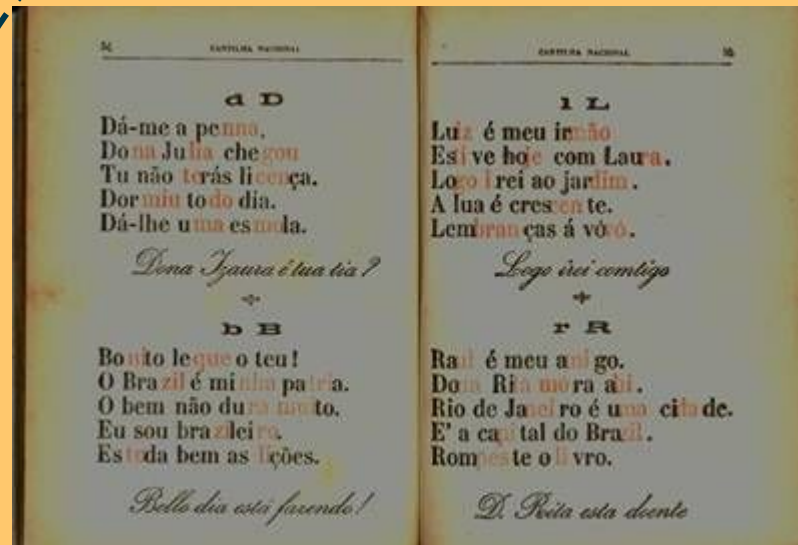 CARTILHA NACIONAL
d D
Dá-me a penna.
Dona Julia chegou
Tu não terás licença.
Dormiu todo dia.
Dá-lhe uma esmola.
Dona Izaura é tua tia?
b B
Bonito leque o teu!
O Brazil é minha patria.
O bem não dura muito.
Eu sou brazileiro.
Estuda bem as lições.
Bello dia está fazendo!
CARTILHA NACIONAL
l L
Luiz é meu irmão
Estive hoje com Laura.
Logo irei ao jardim.
A lua é crescente.
Lembranças á vóvó.
Logo irei comtigo
r R
Raul é meu amigo.
Dona Rita mora ahi.
Rio de Janeiro é uma cidade.
E' a capital do Brazil.
Rompeste o livro.
D. Rita esta doente